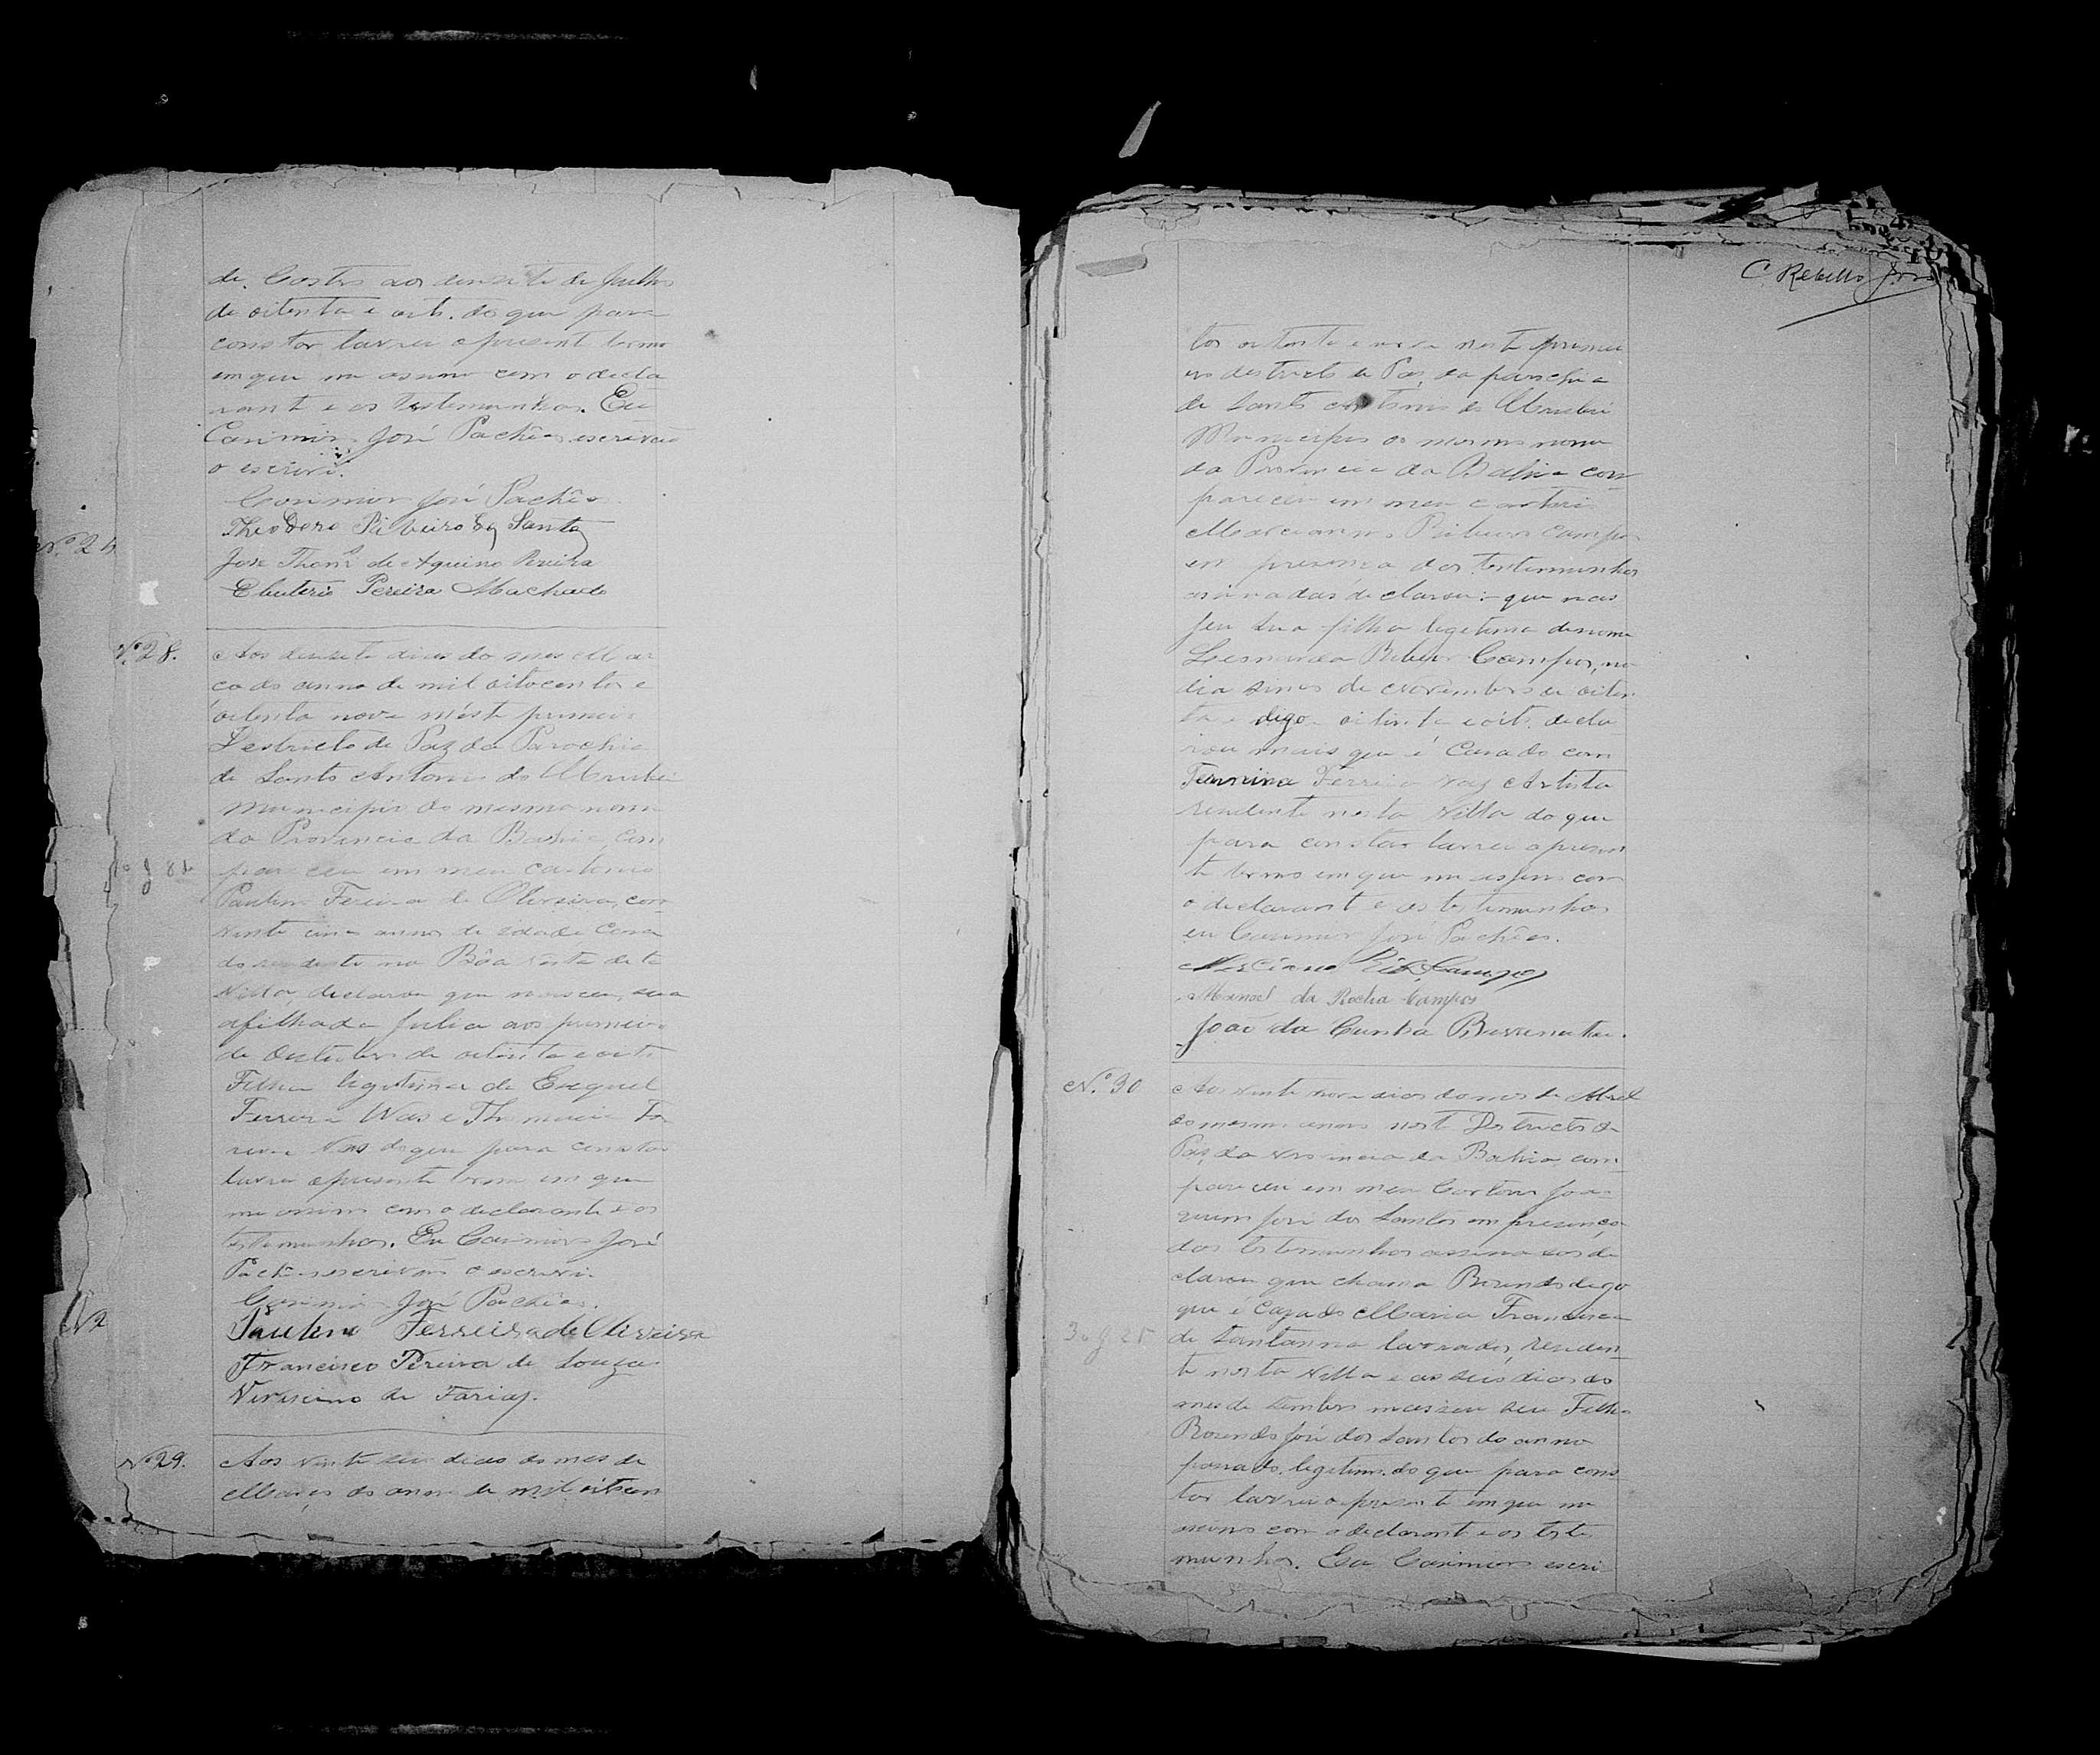 de Castro aos desasete de Julho
de oitenta e oito. do que para
constar lavrei o presente termo
em que me assino com o decla
rante e as testemunhas. Eu
Casimiro José Pachêco escrivão
o escrivi.
Casimiro José Pachêco
Theodoro Ribeiro Santa
José Thomz de Aquino Pereira
Eleuterio Pereira Machado
Nº 28.
Aos desasete dias do mes Mar
ço do anno de mil oitocentos e
oitenta nove néste primeiro
Destricto de Paz da Parochia
de Santo Antonio do Urubú
Municipio do mesmo nome
da Provincia da Bahia, com
pareceu em meu cartorio
Paulino Fereira de Oliveira, com
vinte cinco annos de idade Casa
do residente na Bôa vista desta
Villa, declarou que nasceu, sua
afilhada Julia aos primeiro
de Outubro de oitenta e oito
Filha legitima de Esequiel
Ferreira Vas e Thomasia Fer
reira Vas do que para constar
lavrei o presente termo em que
me assino com o declarante e as
testemunhas. Eu Casimiro José
Pachêco escrivão o escrevi.
Casimiro José Pachêco.
Paulino Ferreira de Oliveira
Francisco Pereira de Souza
Virissimo de Farias.
Nº 29.
Aos vinte seis dias do mes de
Março do anno de mil oitocen
C. Rebello Jor
tos oitenta e nove neste primei
ro destricto de Paz, da parochia
de Santo Antonio do Urubú
Municipio do mesmo nome
da Provincia da Bahia com
pareceu em meu cartorio
Marcianno Ribeiro Campos
em presença das testemunhas
asinadas declarou:- que nas
seu sua filha legitima de nome
Leonarda Ribeiro Campos, no
dia sinco de Novembro de oiten
ta e digo oitenta e oito. decla
rou mais que é Casado com
Firmina Ferreira Vas Artista
residente nesta Villa do que
para constar lavrei o presen
te termo em que me assino com
o declarante e as testemunhas
eu Casimiro José Pachêco.
Marciano Rib. Campos
Manoel da Rocha Campos
João da Cunha
Nº 30
Aos vinte nove dias do mes de Abril
do mesmo anno neste Destricto de
Paz, da Provincia da Bahia com
pareceu em meu Cartorio Joa
quim José dos Santos em presença
das testemunhas assinadas de
clarou que chama Rosendo digo
que é Cazado Maria Francisca
de Santanna lavrador, residen
te nesta Villa e aos seis dias do
mes de Setembro nasseu seu Filho
Rosendo José dos Santos do anno
passado, legitimo. do que para cons
tar lavrei o presente em que me
assino com o declarante e as teste
munhas. Eu Casimiro escri